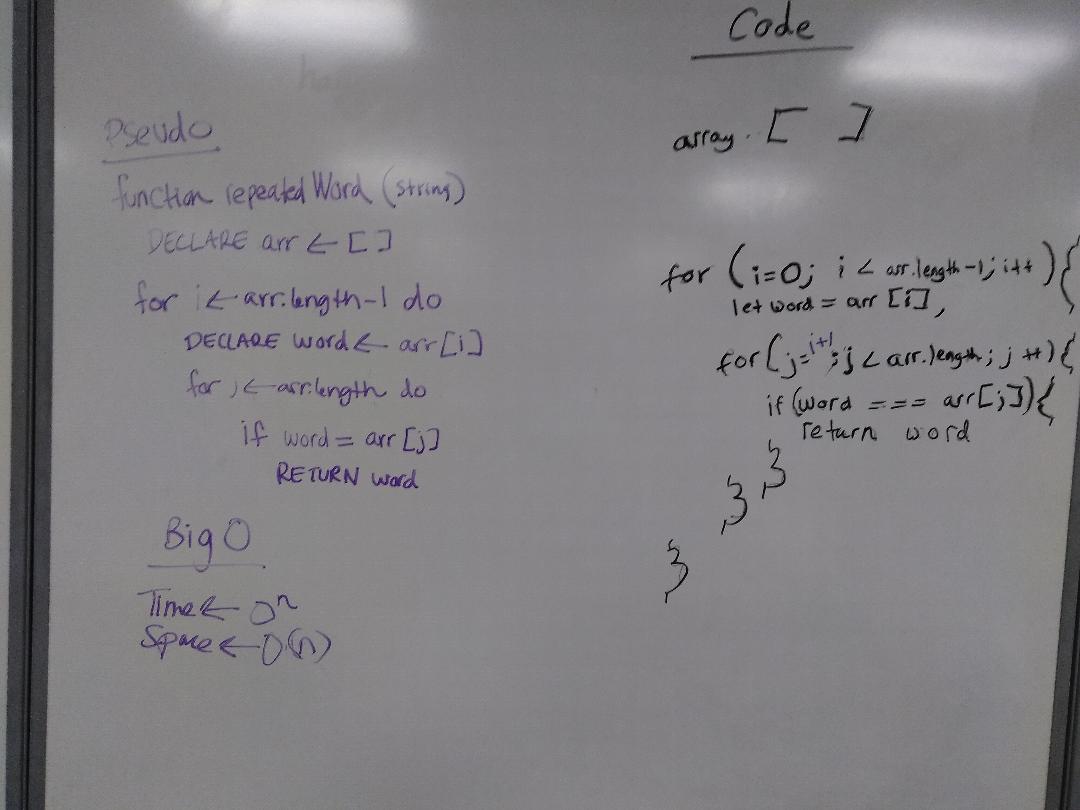 Pseudo
function repeatedWord (string)
DECLARE arr ← [ ]
for i ← arr.length-1 do
DECLARE word ← arr[i]
for j ← arr.length do
if word = arr[j]
RETURN word
Big O
Time ← Oⁿ
Space ← O(n)
Code
array. [ ]
for (i=0; i < arr.length-1; i++){
let word = arr [i],
for(j=i+1; j < arr.length; j++){
if (word === arr[j]){
return word
}
}
}